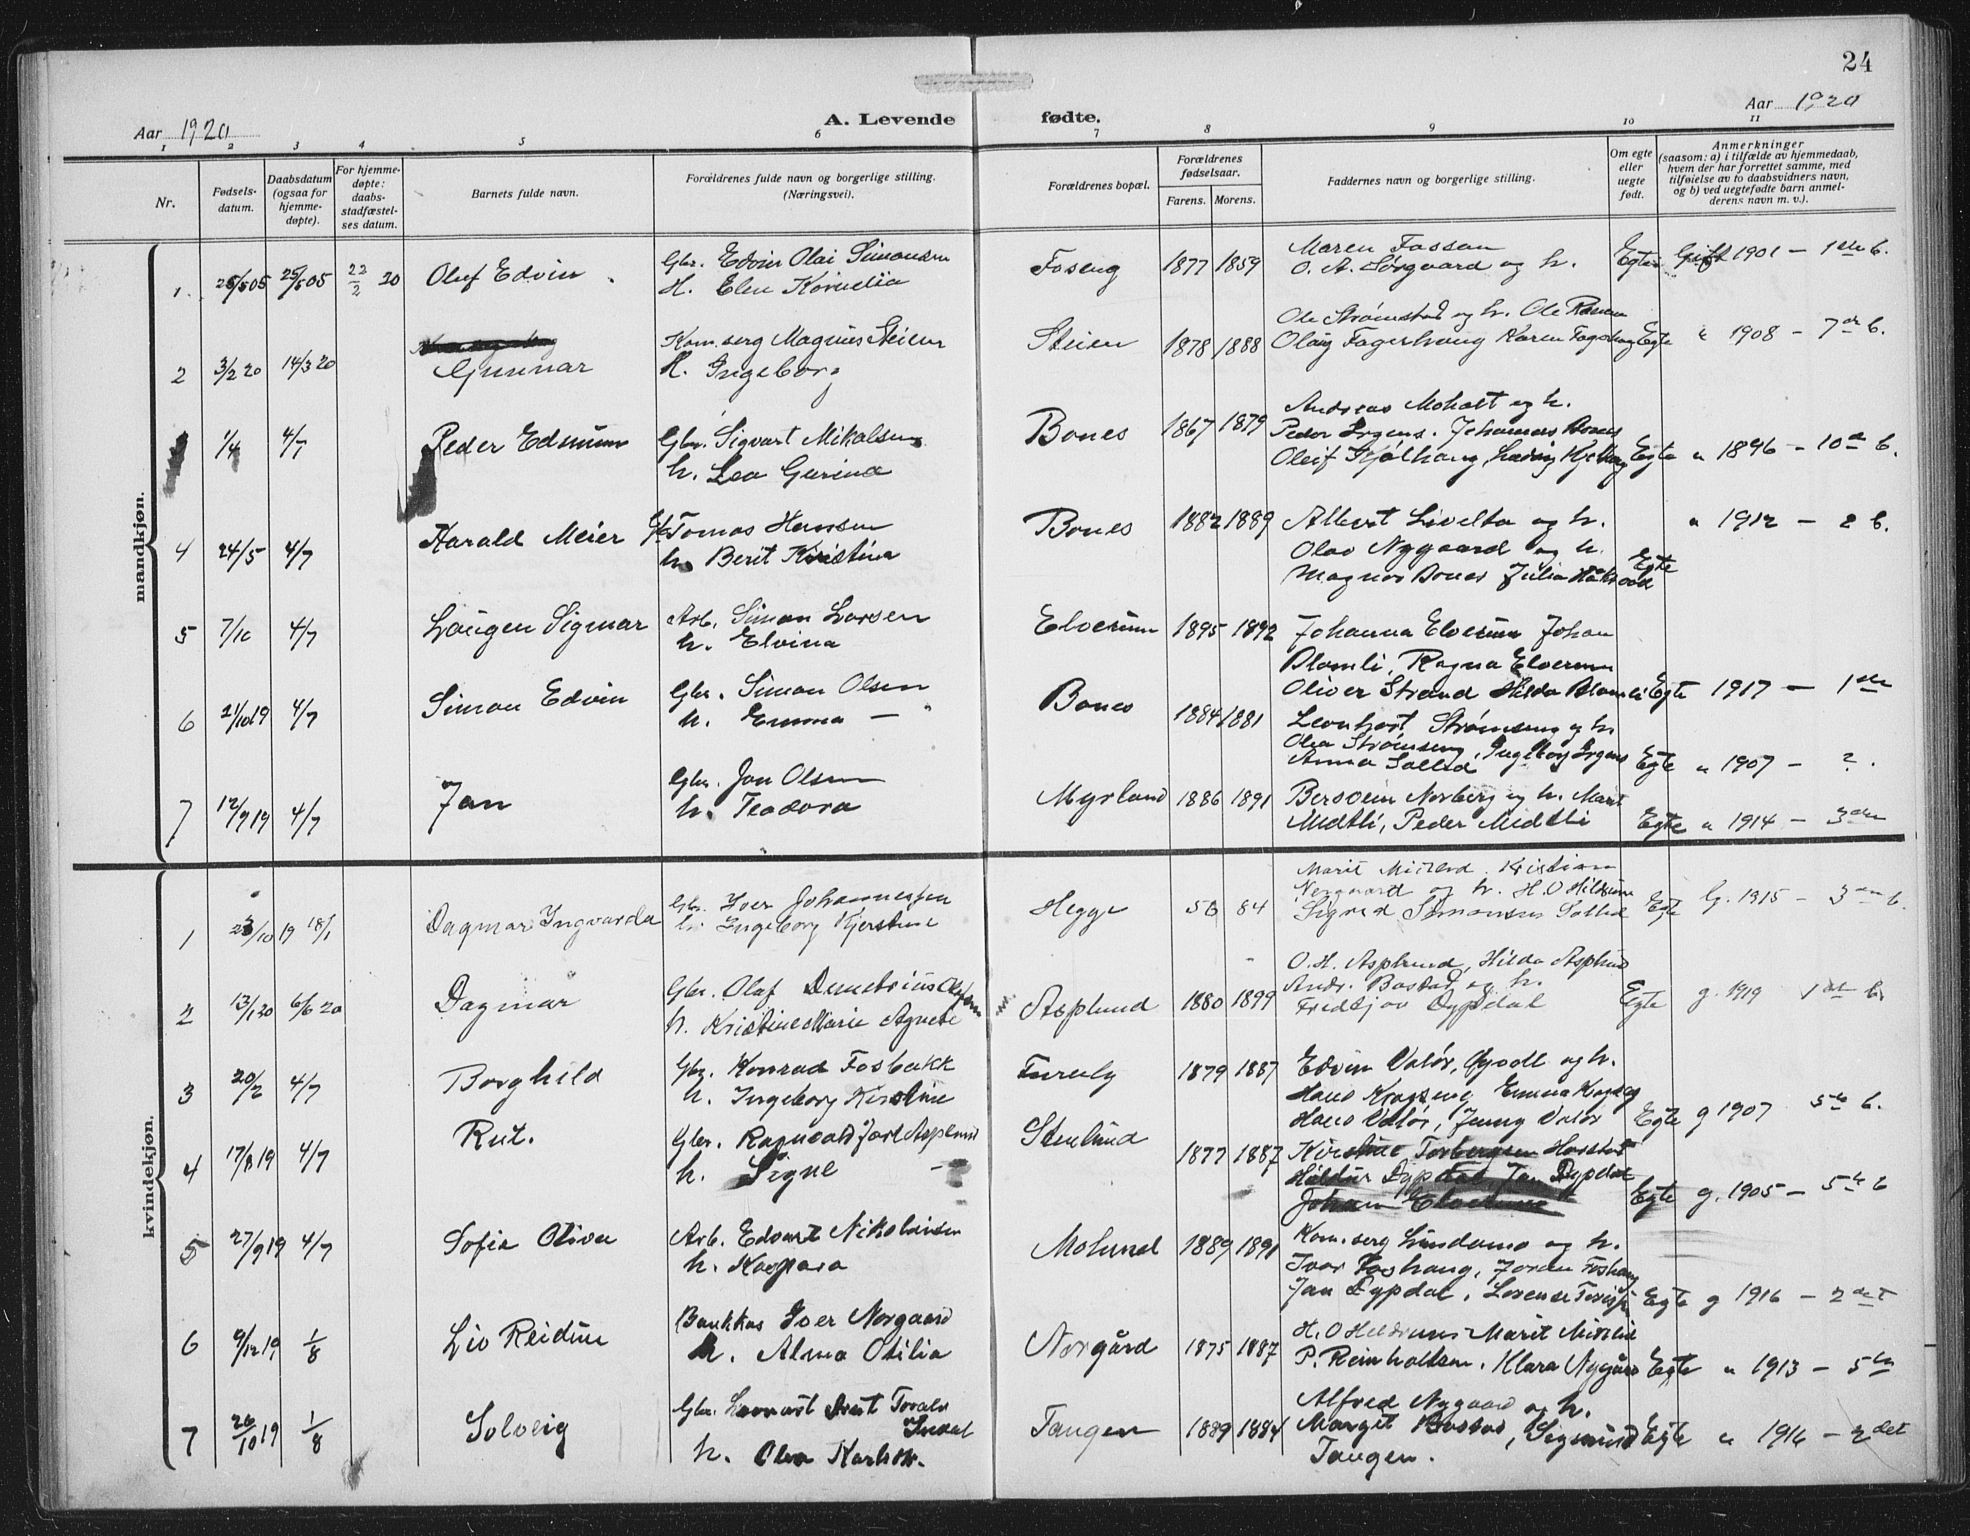 24
Aar 1920
A. Levende fødte.
Aar 1920
1 2 3 4 5 6 7 8 9 10 11
Nr.
Fødsels-
datum.
Daabsdatum
(ogsaa for
hjemme-
døpte).
For hjemme-
døpte:
daabs-
stadfæstel-
ses datum.
Barnets fulde navn.
Forældrenes fulde navn og borgerlige stilling.
(Næringsvei).
Forældrenes bopæl.
Forældrenes
fødselsaar.
Farens. Morens.
Faddernes navn og borgerlige stilling.
Om egte
eller
uegte
født.
Anmerkninger
(saasom: a) i tilfælde av hjemmedaab,
hvem der har forrettet samme, med
tilføielse av to daabsvidners navn,
og b) ved uegtefødte barn anmel-
derens navn m. v.).
mandkjøn.
1. 25/5 05 25/5 05 22/2 20 Oluf Edvin Gbr. Edvin Olai Simonsen
H. Elen Kornelia
Foseng 1877 1859 Maren Fossan
O. A. Sørgaard og h. Egte Gift 1901 – 1ste b.
2 3/2 20 14/3 20 Gunnar Kom.serg Magnus Steien
h. Ingeborg
Steien 1878 1888 Ole Strømstad og h. Ole
Olaug Fagerhaug Karen Egte " 1908 – 7de b.
1/4 4/7 Peder Edmund Gbr. Sigvart Mikalsen
h. Lea Gurina
Bones 1867 1879 Andreas Moholt og h.
Peder Ørgens. Johannes Bones
Oleif Egte " 1896 – 10de b.
4 24/5 4/7 Harald Meier Tomas Hansen
h. Berit Kristine
Bones 1882 1889 Albert Livelta og h. " 1912 – 2 b.
Olav Nygaard og h.
Magnus Bones Julia Egte
5 7/10 4/7 Laugen Sigmar Arb. Simon Larsen
h. Elvina
Elverum 1895 1892 Johanna Elverum Johan
Blomli, Ragna Elverum
Oliver Strand Hilda Blomli Egte 1917 – 1ste
6 21/10 19 4/7 Simon Edvin Gbr. Simon Olsen
h. Emma –"
Bones 1884 1881 Leonhart Strømseng og h.
Olea Strømseng, Ingeborg Ørgens
Anna Sollid Egte " 1907 – ?.
7 12/9 19 4/7 Jan Gbr. Jan Olsen
h. Teodora
Myrland 1886 1891 Bersvein Norberg og h. Marit
Midtli, Peder Midtli Egte " 1914 – 3die
kvindekjøn.
1 23/10 19 18/1 Dagmar Ingvarda Gbr. Iver Johannessen
h. Ingeborg Kjerstine
Hegge 56 84 Marit Midtlid. Kristian
Norgaard og h. H. O Hildrum
Sigrid Simonsen Sollid Egte G. 1915 – 3die b.
2 13/1 20 6/6 20 Dagmar Gbr. Olaf Demetrius Olsen
h. Kristine Marie Agnete
Asplund 1880 1899 O. H. Asplund, Hilda Asplund
Andr. Bostad og h.
Fridtjov Dypdal Egte g. 1919 1ste b.
3 20/2 4/7 Borghild Gbr. Konrad Fosbakk
h. Ingeborg Kirstine
Fureli 1879 1887 Edvin Valør, og h.
Hans Krogseng Emma Krogseng
Hans Valør, Jenny Valør Egte g 1907 5te b.
4 17/8 19 4/7 Rut. Gbr. Ragnvald Jarl Asplund
h. Signe –"
Stenlund 1877 1887 Kirstine Torbergsen
Haldur Dypdal Jan Dypdal
Johan Elverum Egte g. 1905 – 5te b
5 27/9 19 4/7 Sofie Oliva Arb. Edvart Nikolaisen
h. Kaspara
Molund 1889 1891 Kom.serg Lundamo og h.
Ivar Foshaug, Jordan Foshaug
Jan Dypdal, Lorense Egte g 1916 – 2det
6 9/12 19 1/8 Liv Reidun Bankkas Iver Norgaard
h. Alma Otilia
Norgård 1875 1887 H. O Hildrum Marit Midtlid
P. Reinholtsen. Klara Nygård Egte " 1913 – 5te
7 26/10 19 1/8 Solveig Gbr. Lornast Torald
Indal
h. Olva
Tangen 1889 1884 Alfred Nygaard og h.
Margit Bostad, Sigmund Egte " 1916 – 2det
Tangen.